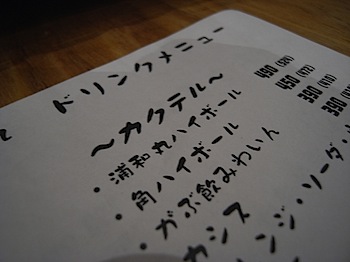 ドリンクメニュー
～カクテル～
・浦和丸ハイボール 490
・角ハイボール 450
・がぶ飲みわいん 390
・カシス 390
ソーダ・